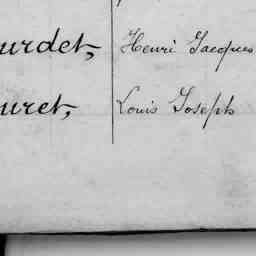 urdet, Henri Jacques
uret, Louis Joseph